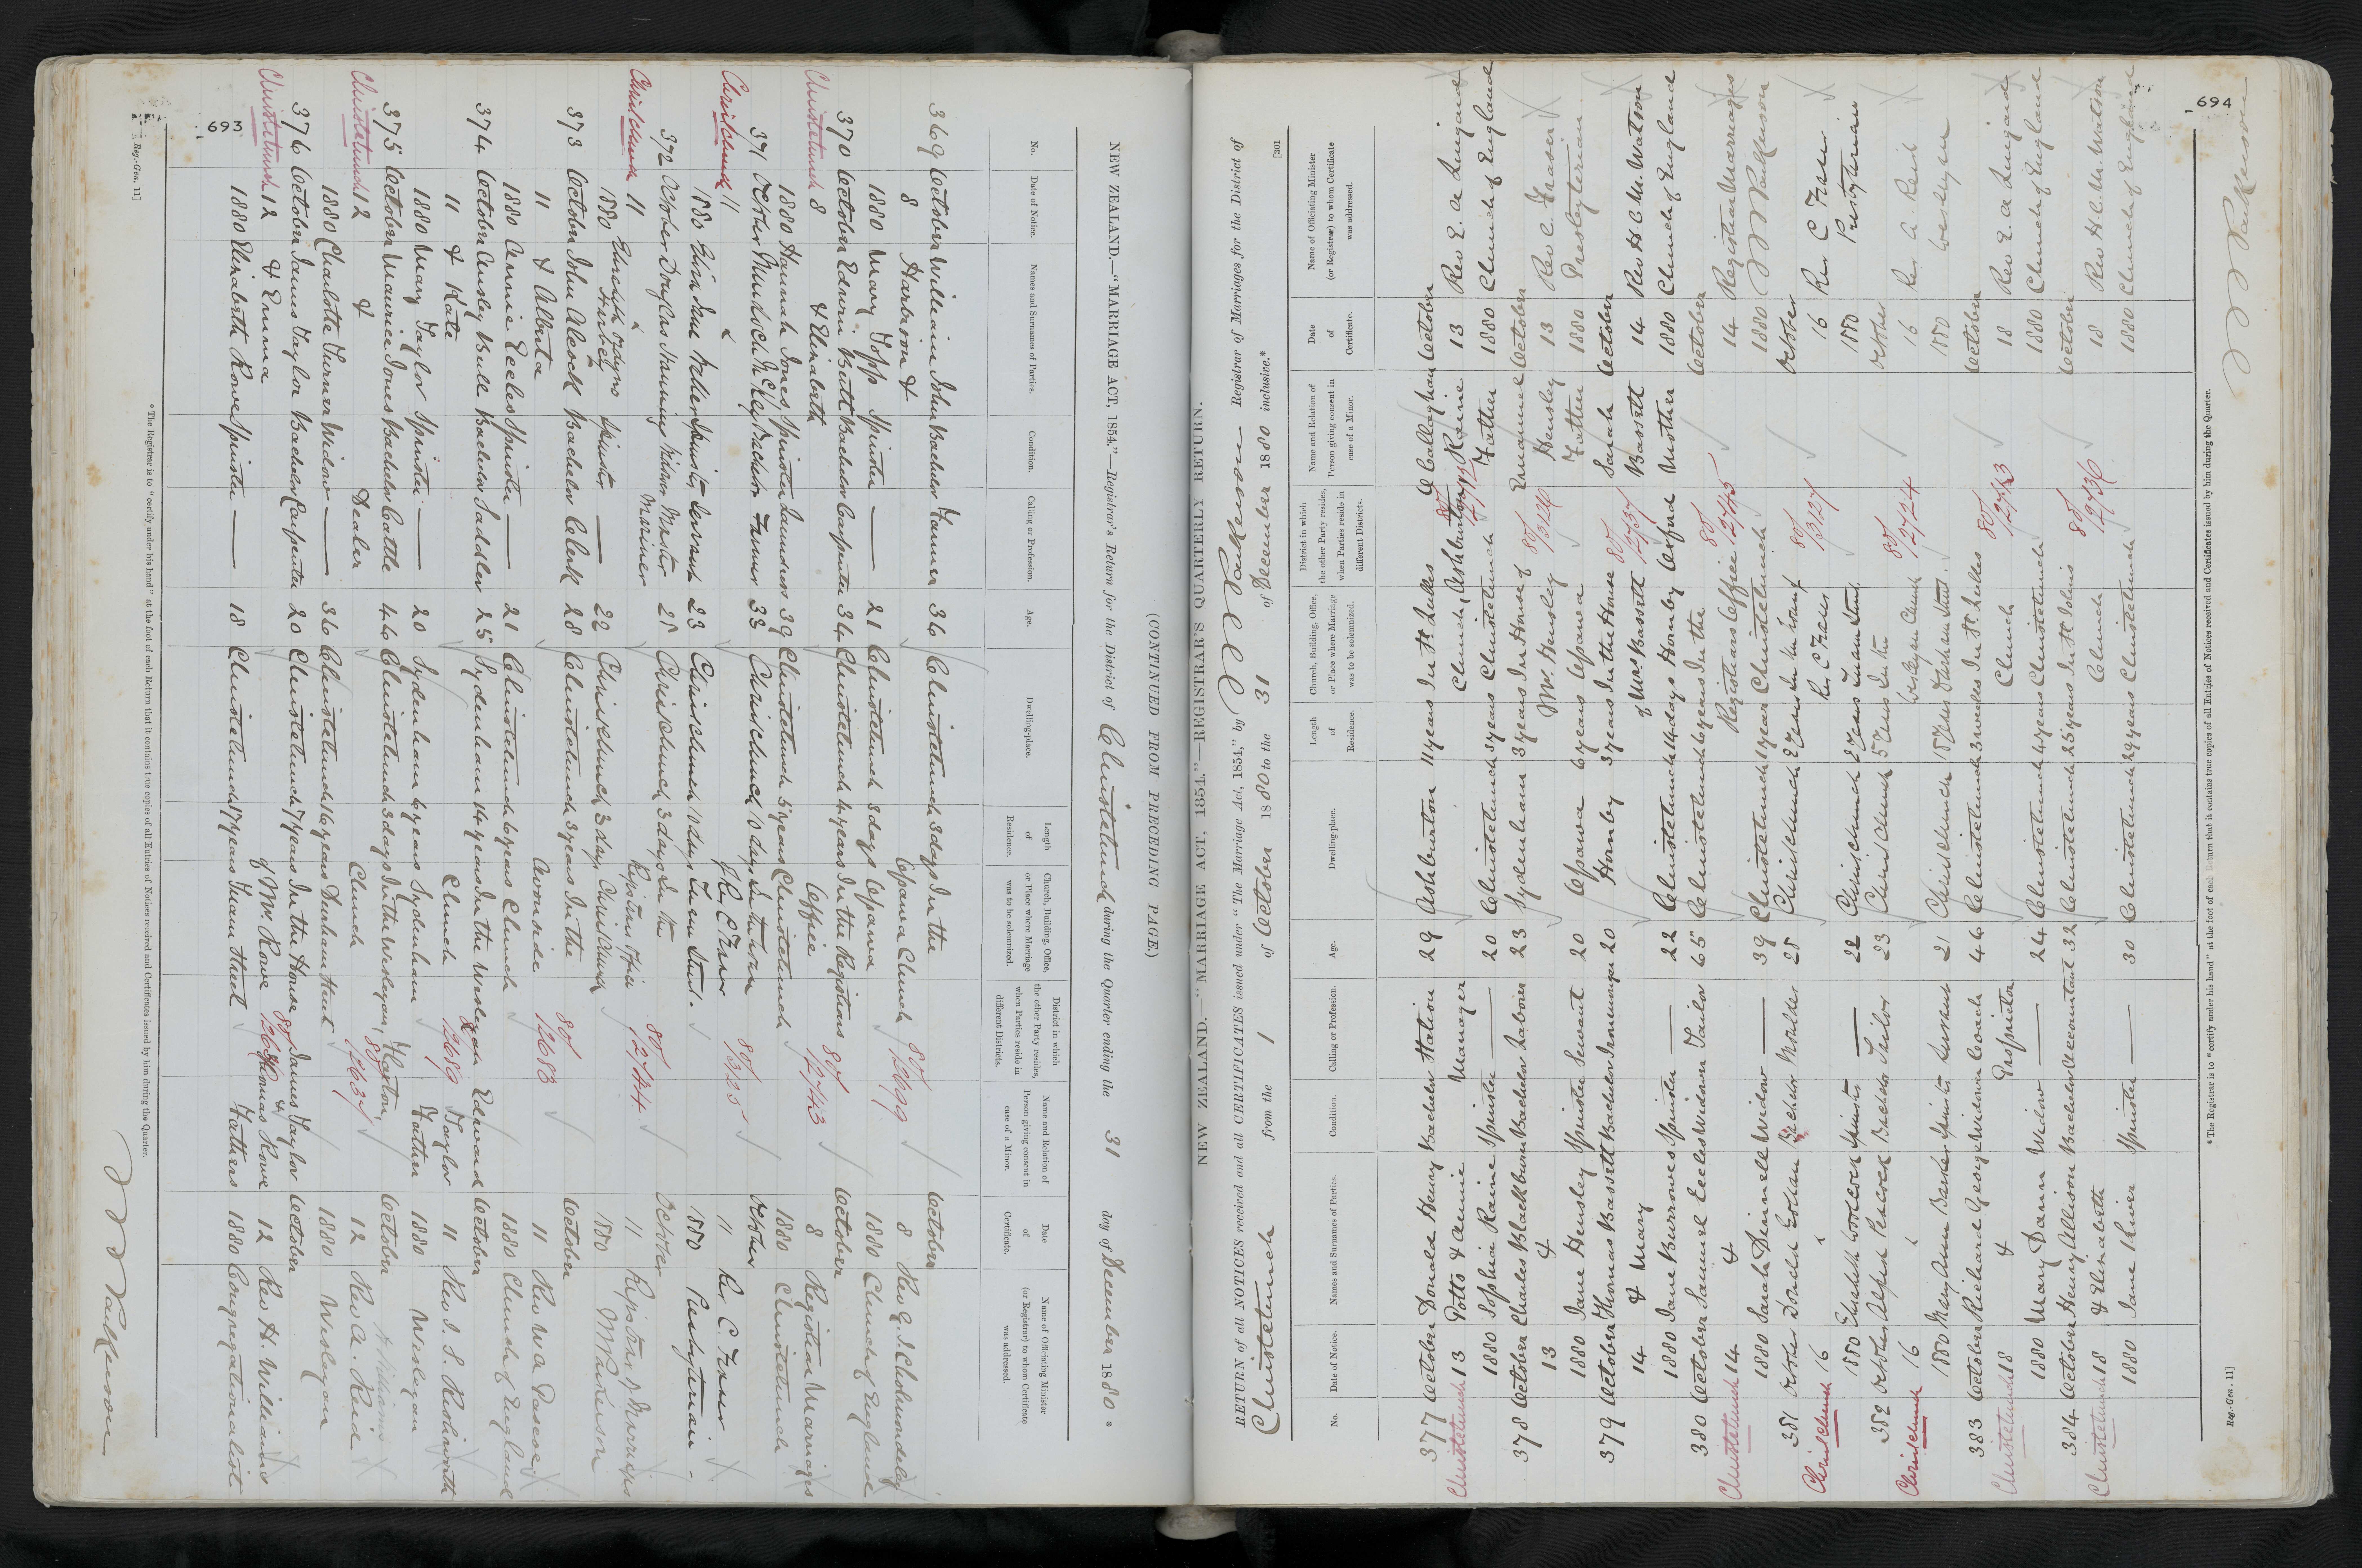 693
NEW ZEALAND.—"MARRIAGE ACT, 1854."—Registrar's Return for the District of Christchurch during the Quarter ending the 31 day of December 1880.
No. Date of Notice. Names and Surnames of Parties. Condition. Calling or Profession. Age. Dwelling-place. Length of Residence. Church, Building, Office, or Place where Marriage was to be solemnized. District in which the other Party resides, when Parties reside in different Districts. Name and Relation of Person giving consent in case of a Minor. Date of Certificate. Name of Officiating Minister (or Registrar) to whom Certificate was addressed.
369 October William John Bachelor Farmer 36 Christchurch 3 days In the October
8 Harbison & Opawa Church 80/2699 8 Rev G. J. Cholmondeley
1880 Mary Topp Spinster — 21 Christchurch 3 days Opawa 1880 Church of England
370 October Edwin Butt Bachelor Carpenter 34 Christchurch 4 years In the Registrars October
Christchurch 8 & Elizabeth Office 80/2743 8 Registrar Marriages
1880 Hannah Jones Spinster Laundress 39 Christchurch 5 years Christchurch 1880 Christchurch
371 October Bachelor Farmer 33 Christchurch 10 days In the house October
Christchurch 11 & of Rev C Fraser 80/3125 11 Rev C. Fraser
1880 Eliza Jane Spinster Servant 23 Christchurch 10 days Inwn Street. 1880 Presbyterian
372 October Douglas Manning Widower Master 28 Christchurch 3 days In the October
Christchurch 11 & Mariner Registrars Office 80/2744 11 Registrar of Marriages
1880 Spinster — 22 Christchurch 3 days Christchurch 1880
373 October John Alcock Bachelor Clerk 28 Christchurch 3 years In the October
11 & Alberta Avonside 80/2683 11 Rev W A Pascoe
1880 Annie Eeles Spinster — 21 Christchurch 6 years Church 1880 Church of England
374 October Ansley Bull Bachelor Saddler 25 Sydenham 14 years In the Wesleyan Edward October
11 & Kate Church 80/2689 Taylor 11 Rev S. S. Rishworth
1880 May Taylor Spinster — 20 Sydenham 6 years Sydenham Father 1880 Wesleyan
375 October Maurice Jones Bachelor Cattle 46 Christchurch 3 days In the Wesleyan October
Christchurch 12 & Dealer Church 12 Rev A. Reid
1880 Charlotte Turner Widow — 36 Christchurch 16 years Durham Street 1880 Wesleyan
376 October James Taylor Bachelor Carpenter 20 Christchurch 17 years In the House James Taylor October
Christchurch 12 & Emma of Mr. Rowe Thomas Rowe 12 Rev H. Williams
1880 Elizabeth Rowe Spinster — 18 Christchurch 17 years Tuam Street Fathers 1880 Congregationalist
* The Registrar is to "certify under his hand" at the foot of each Return that it contains true copies of all Entries of Notices received and Certificates issued by him during the Quarter.
Reg.-Gen. 11]
(CONTINUED FROM PRECEDING PAGE.)
694
[301
NEW ZEALAND.—"MARRIAGE ACT, 1854."—REGISTRAR'S QUARTERLY RETURN.
RETURN of all NOTICES received and all CERTIFICATES issued under "The Marriage Act, 1854," by Registrar of Marriages for the District of
Christchurch from the 1 of October 1880 to the 31 of December 1880 inclusive.*
No. Date of Notice. Names and Surnames of Parties. Condition. Calling or Profession. Age. Dwelling-place. Length of Residence. Church, Building, Office, or Place where Marriage was to be solemnized. District in which the other Party resides, when Parties reside in different Districts. Name and Relation of Person giving consent in case of a Minor. Date of Certificate. Name of Officiating Minister (or Registrar) to whom Certificate was addressed.
377 October Donald Henry Bachelor Station 29 Ashburton 11 years In St. Lukes O'Callaghan October
Christchurch 13 Potts & Annie Manager Church, Ashburton Raine 13 Rev E. A. Lingard
1880 Sophia Raine Spinster — 20 Christchurch 3 years Christchurch Father 1880 Church of England
378 October Charles Blackburn Bachelor Labourer 23 Sydenham 3 years In House of Emanuel October
13 & Mr. Hensley 80/3126 Hensley 13 Rev C. Fraser
1880 Jane Hensley Spinster Servant 20 Opawa 6 years Opawa Father 1880 Presbyterian
379 October Thomas Bassett Bachelor Ironmonger 20 Hornby 3 years In the House Sarah October
14 & Mary of Mrs. Bassett 80/2737 Bassett 14 Rev H. C. M. Watson
1880 Jane Burrowes Spinster — 22 Christchurch 14 days Hornby Oxford Mother 1880 Church of England
380 October Samuel Eeles Widower Tailor 65 Christchurch 6 years In the October
Christchurch 14 & Registrars Office 80/2745 14 Registrar Marriages
1880 Sarah Dinnell Widow — 39 Christchurch 1 year Christchurch 1880
381 October Bachelor 25 Christchurch 2 Years In the house of October
Christchurch 16 & Rev C Fraser 80/3127 16 Rev C Fraser
1880 Elizabeth Spinster — 22 Christchurch 2 Years 1880 Presbyterian
382 October Alfred Peacock Bachelor Tailor 23 Christchurch 5 Years In the October
Christchurch 16 & Wesleyan Church 80/2724 16 Rev A. Reid
1880 Mary Ann Barker Spinster 21 Christchurch 15 Years Durham Street. 1880 Wesleyan
383 October Richard George Widower Coach 46 Christchurch 3 weeks In St. Lukes October
Christchurch 18 & Proprietor Church 80/2713 18 Rev E. A. Lingard
1880 Mary Dann Widow — 24 Christchurch 4 years Christchurch 1880 Church of England
384 October Henry Allison Bachelor Accountant 32 Christchurch 25 years In St. Johns October
Christchurch 18 & Elizabeth Church 80/2736 18 Rev H. C. M. Watson
1880 Jane River Spinster — 30 Christchurch 29 years Christchurch 1880 Church of England
* The Registrar is to "certify under his hand" at the foot of each Return that it contains true copies of all Entries of Notices received and Certificates issued by him during the Quarter.
Reg.-Gen. 11]